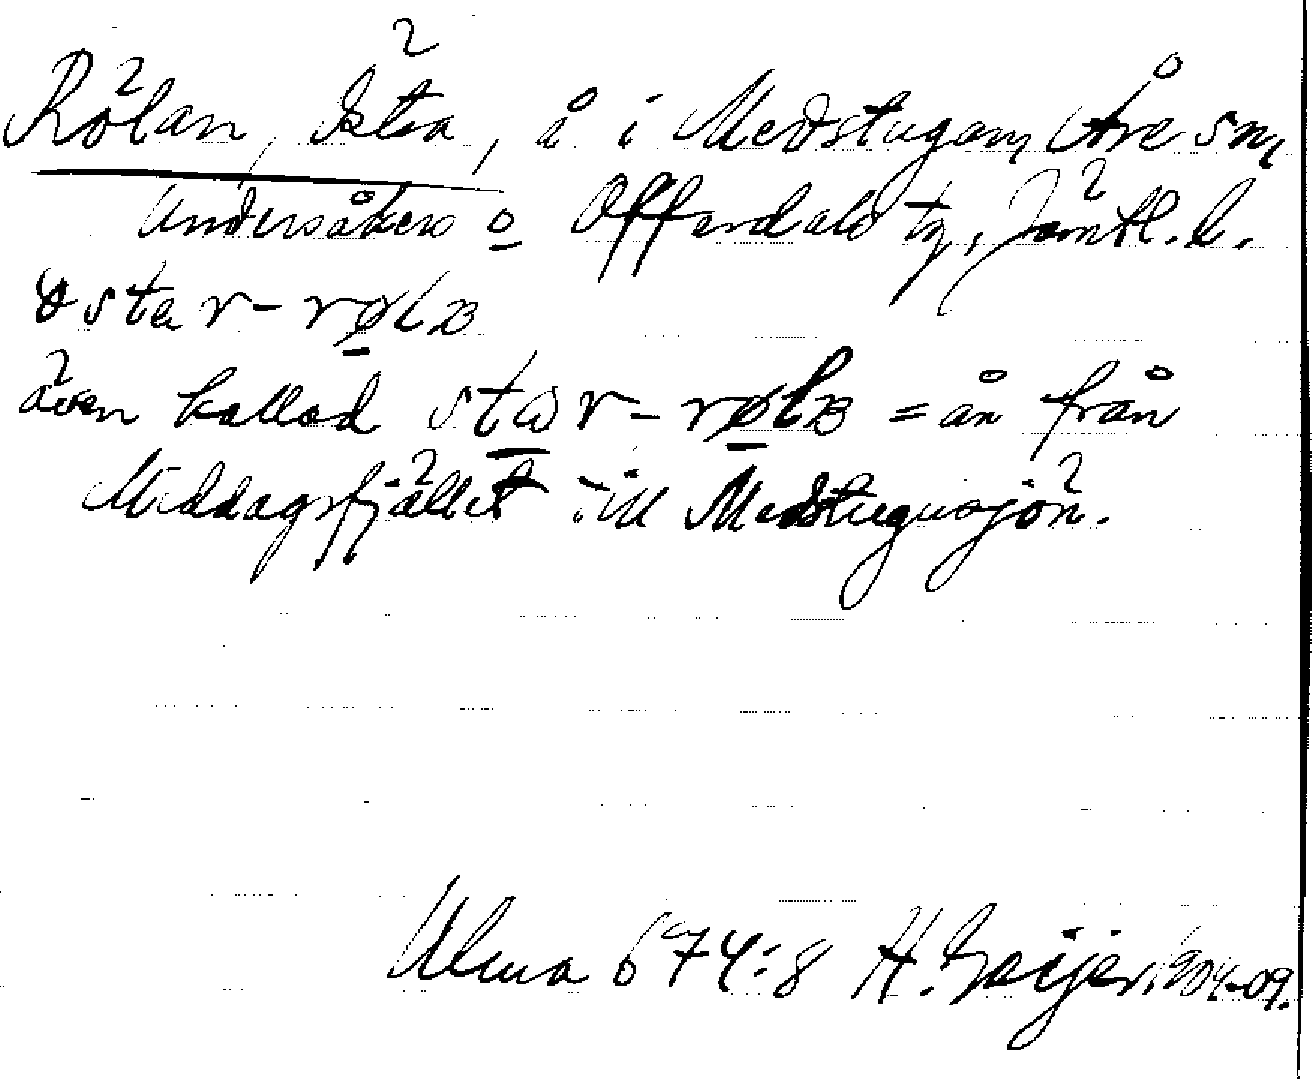 Rölan, Östra, å i Medstugan, Åre sn,
Undersåkers o Offerdals tg, Jämtl. l.
østar-røLʙ
även kallad star-røLʙ = ån från
Middagsfjället till Medstugusjön.
Ulma 674:8 H. Geijer, 1904-09.